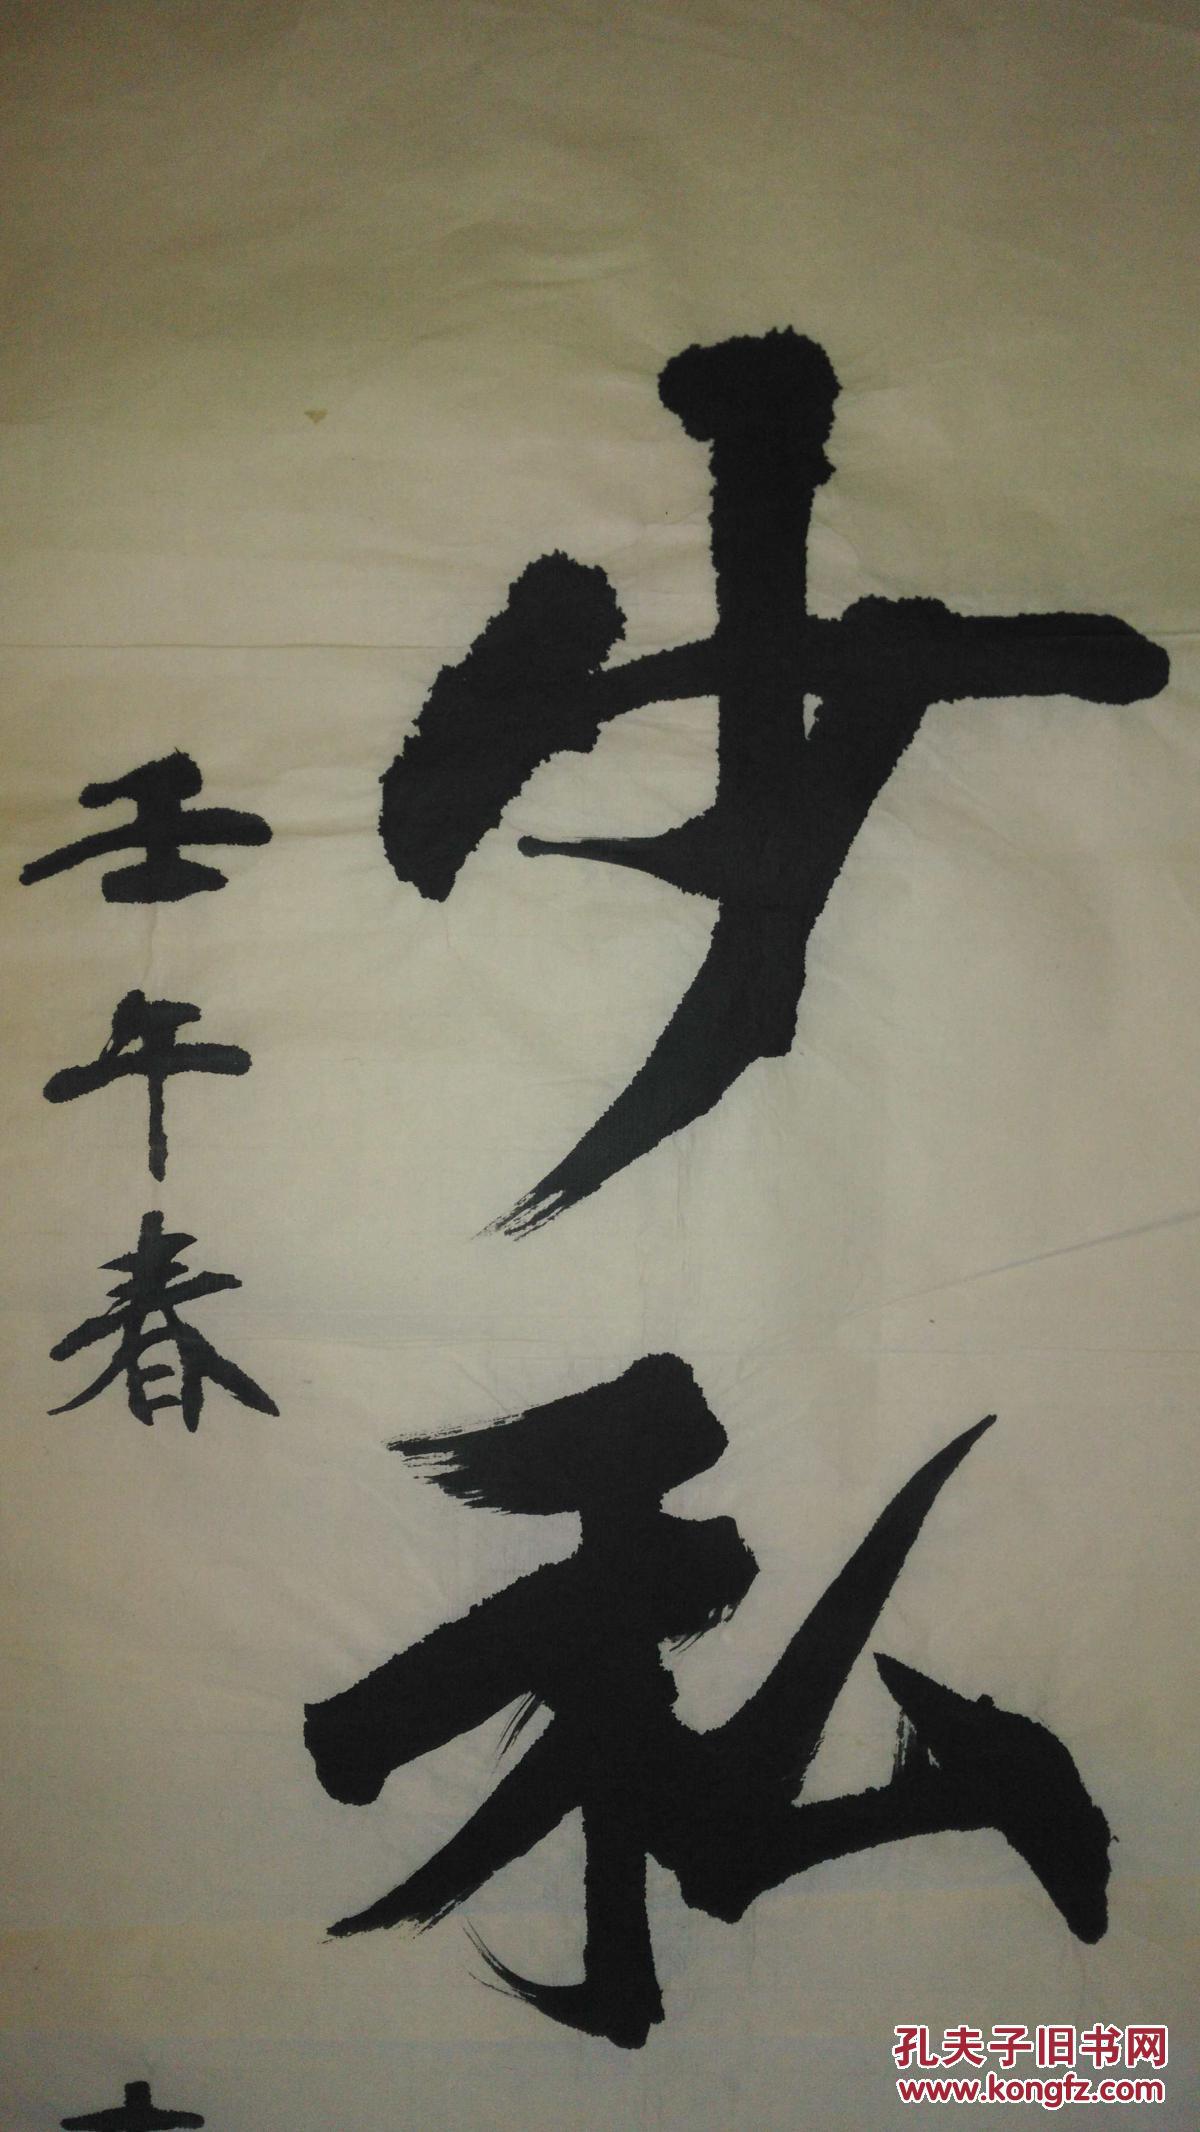 少私
壬午春
孔夫子旧书网
www.kongfz.com